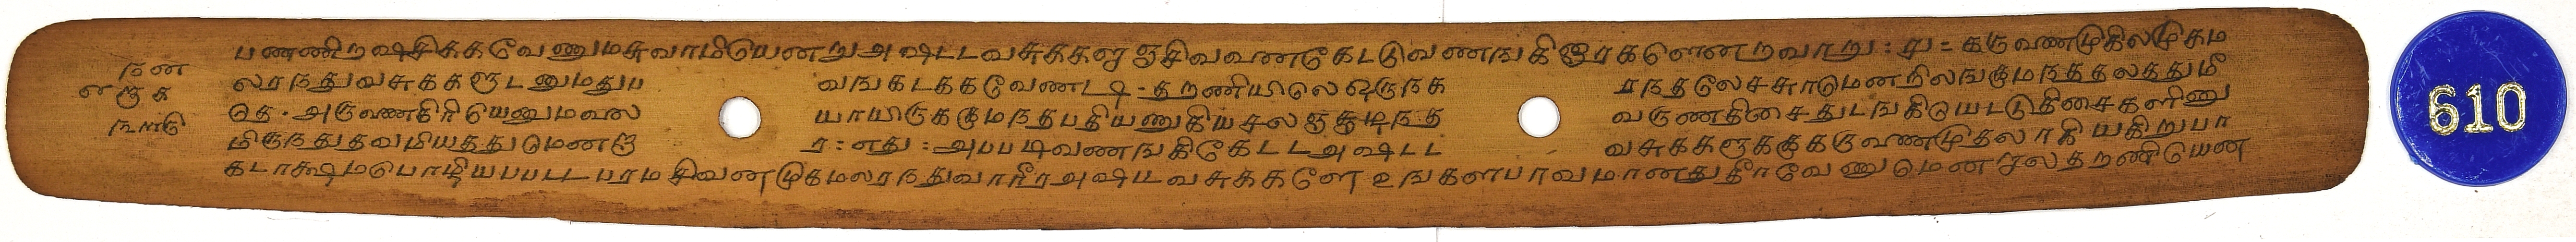 நன
எ ரு க
நாடு
பணணிறஷசிககவேணுமசுவாமியெனறு அஷடடவசுககளு ஞசிவவணகேடடுவணஙகிஞரகளெனறவாறு : ரு = கருவணமுகிலமுகம
லரநதுவசுககளுடனுமதுப வஙகடககவேணடி - தறணியிலெஒருநக ரநதலேசசுாடுமனநிலஙகுமநததலததுமீ
தெ - அருவணகிரியெனுமவல யாயிருககுமநதபதியணுகியசல ஞசூடிநத வருணதிசைதுடஙகியெடடுதிசைகளினு
மிருநதுதவமியதது மெணஞ ர : எது : அபபடிவணஙகிகேடட அஷடட வசுககளுககுகருவணமுதலாகியகிறுபா
கடாக்ஷமபொழியபபடட பரம சிவன முகமலரநதுவாரீர அஷடவசுககளே உஙகளபாவமானதுதீரவேணுமெனறாலதறணியென
610